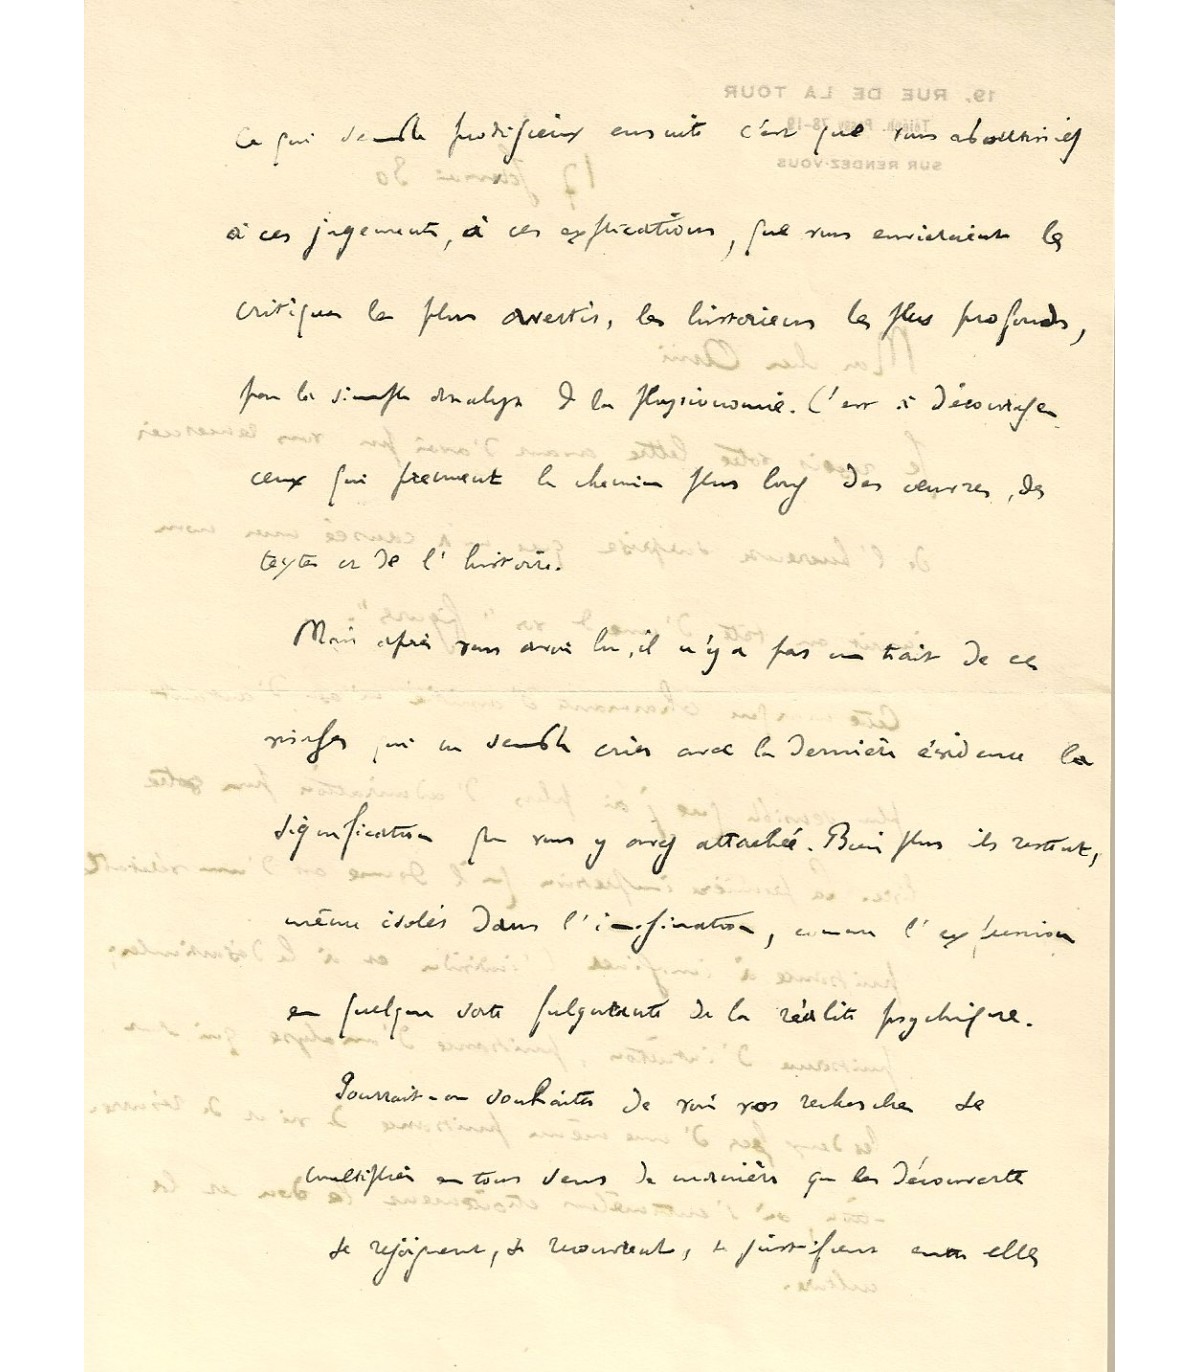 Ce qui semble prodigieux ensuite c'est que vous aboutissiez
à ces jugements, à ces explications, que vous envieraient les
critiques les plus avertis, les historiens les plus profonds,
par la simple analyse de la physionomie. C'est à décourager
ceux qui prennent le chemin plus long des œuvres, des
textes et de l'histoire.
Mais après vous avoir lu, il n'y a pas un trait de ces
visages qui ne semble crier avec la dernière évidence la
signification que vous y avez attachée. Bien plus ils restent,
même isolés dans l'imagination, comme l'expression
en quelque sorte fulgurante de la réalité psychique.
Pourrait-on souhaiter de voir vos recherches se
multiplier en tous sens de manière que les découvertes
se rejoignent, se recouvrent, se justifient entre elles
19, RUE DE LA TOUR
Téléph. Passy 78-19
SUR RENDEZ-VOUS
17 février 30
Mon cher Ami
Je reçois votre lettre avant d'avoir pu vous remercier
de l'heureuse surprise que m'a causée mon nom